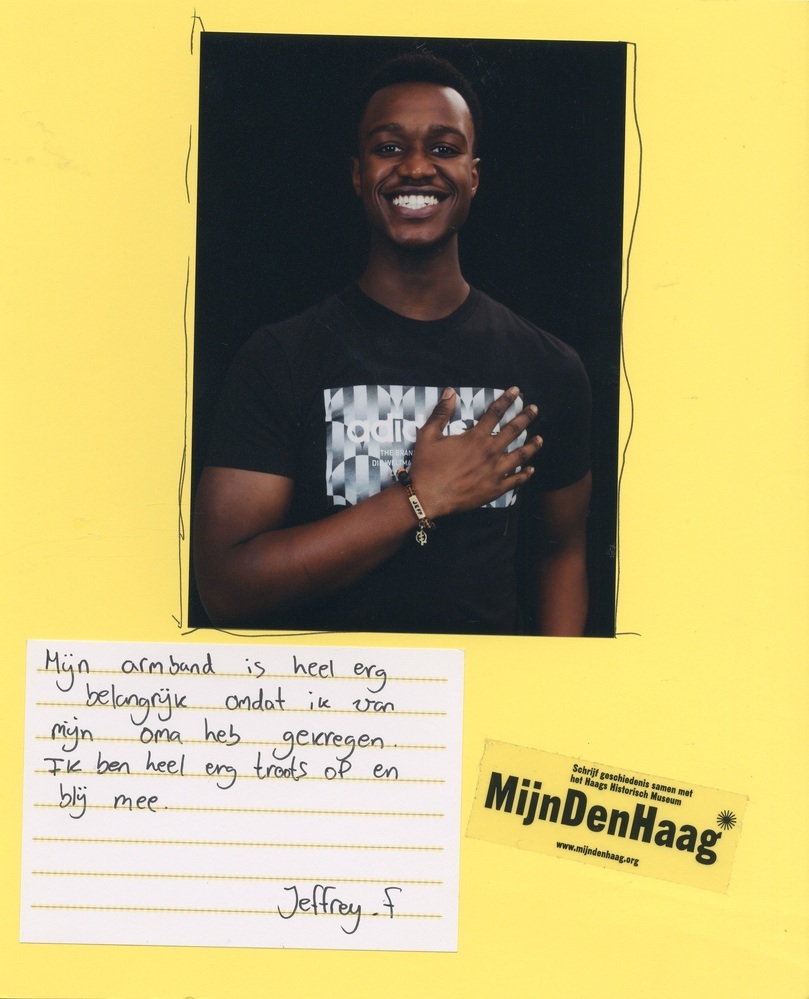 adidas
THE BRAN
DIE WELTMA
JEFF
Mijn armband is heel erg
belangrijk omdat ik van
mijn oma heb gekregen.
Ik ben heel erg troots op en
blij mee.
Jeffrey.F
Schrijf geschiedenis samen met
het Haags Historisch Museum
MijnDenHaag
www.mijndenhaag.org